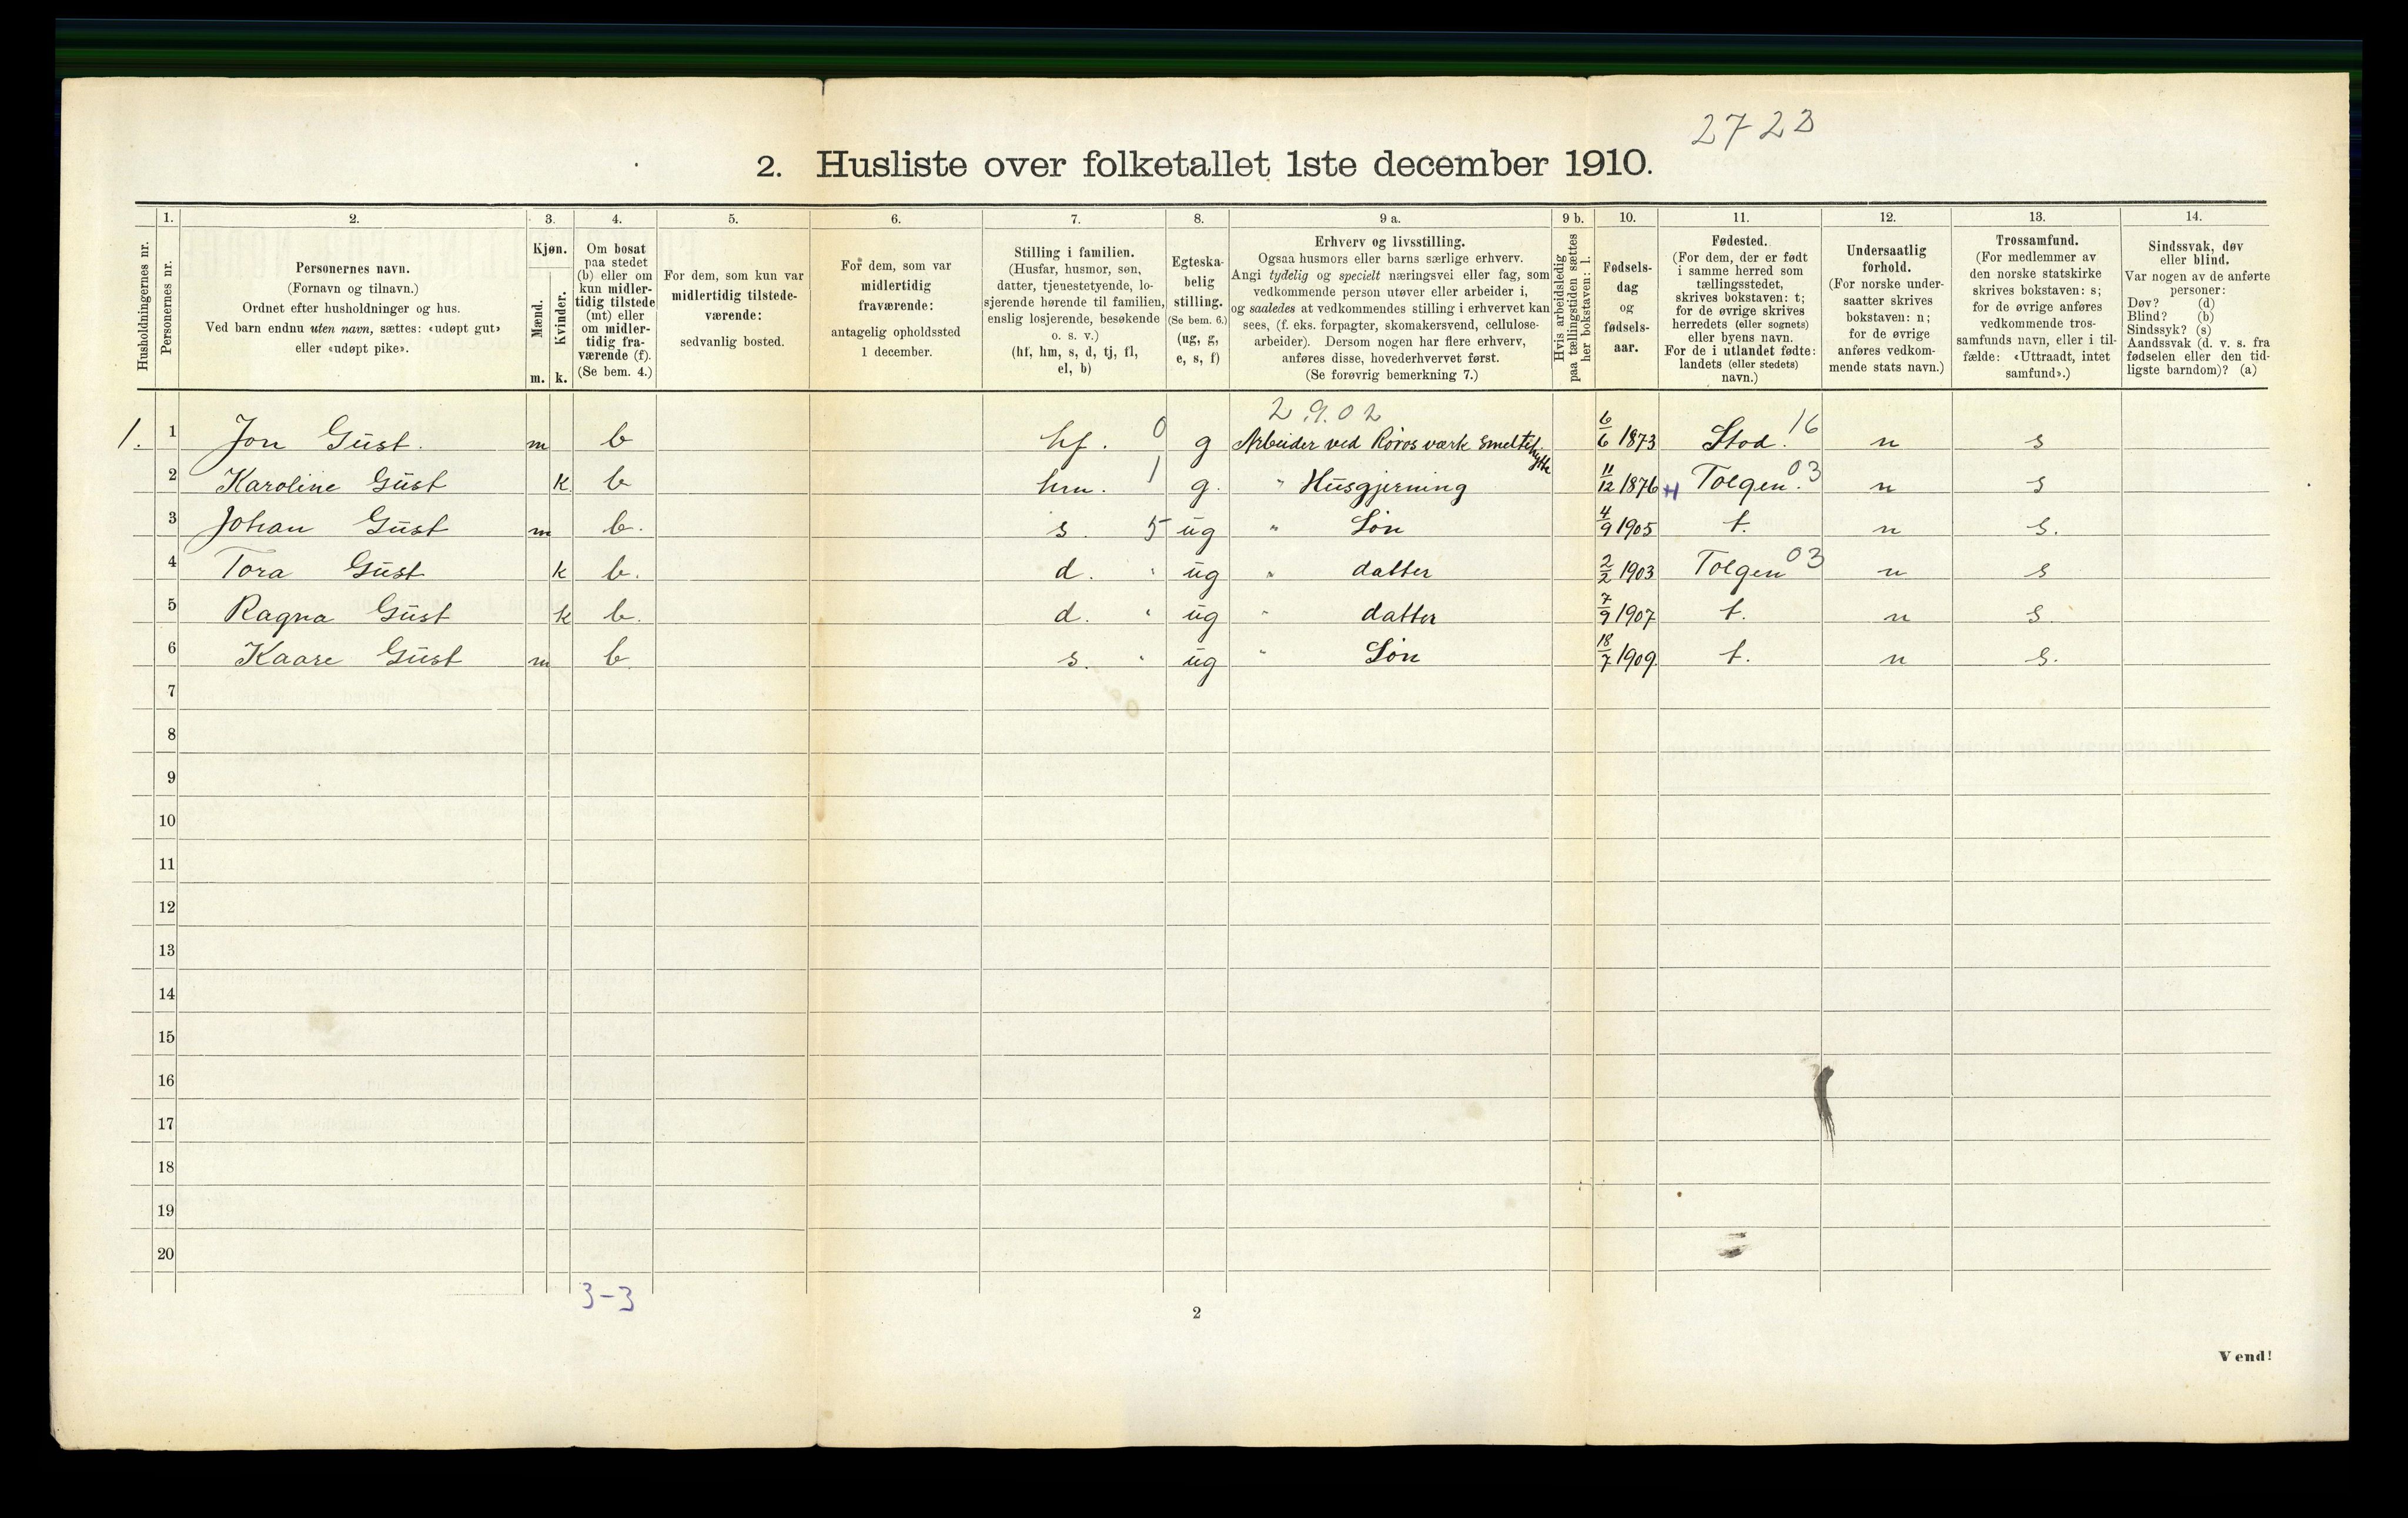 2723
2. Husliste over folketallet 1ste december 1910.
Husholdningernes nr.
1.
Personernes nr.
2.
Personernes navn.
(Fornavn og tilnavn.)
Ordnet efter husholdninger og hus.
Ved barn endnu uten navn, sættes: «udøpt gut»
eller «udøpt pike».
3.
Kjøn.
Mænd.
Kvinder.
m. k.
4.
Om bosat
paa stedet
(b) eller om
kun midler-
tidig tilstede
(mt) eller
om midler-
tidig fra-
værende (f).
(Se bem. 4.)
5.
For dem, som kun var
midlertidig tilstede-
værende:
sedvanlig bosted.
6.
For dem, som var
midlertidig
fraværende:
antagelig opholdssted
1 december.
7.
Stilling i familien.
(Husfar, husmor, søn,
datter, tjenestetyende, lo-
sjerende hørende til familien,
enslig losjerende, besøkende
o. s. v.)
(hf, hm, s, d, tj, fl,
el, b)
8.
Egteska-
belig
stilling.
(Se bem. 6.)
(ug, g,
e, s, f)
9 a.
Erhverv og livsstilling.
Ogsaa husmors eller barns særlige erhverv.
Angi tydelig og specielt næringsvei eller fag, som
vedkommende person utøver eller arbeider i,
og saaledes at vedkommendes stilling i erhvervet kan
sees, (f. eks. forpagter, skomakersvend, cellulose-
arbeider). Dersom nogen har flere erhverv,
anføres disse, hovederhvervet først.
(Se forøvrig bemerkning 7.)
9 b.
Hvis arbeidsledig
paa tællingstiden sættes
her bokstaven: l.
10.
Fødsels-
dag
og
fødsels-
aar.
11.
Fødested.
(For dem, der er født
i samme herred som
tællingsstedet,
skrives bokstaven: t;
for de øvrige skrives
herredets (eller sognets)
eller byens navn.
For de i utlandet fødte:
landets (eller stedets)
navn.)
12.
Undersaatlig
forhold.
(For norske under-
saatter skrives
bokstaven: n;
for de øvrige
anføres vedkom-
mende stats navn.)
13.
Trossamfund.
(For medlemmer av
den norske statskirke
skrives bokstaven: s;
for de øvrige anføres
vedkommende tros-
samfunds navn, eller i til-
fælde: «Uttraadt, intet
samfund».)
14.
Sindssvak, døv
eller blind.
Var nogen av de anførte
personer:
Døv? (d)
Blind? (b)
Sindssyk? (s)
Aandssvak (d. v. s. fra
fødselen eller den tid-
ligste barndom)? (a)
2902
1. 1 Jon Gust. m b hf. 0 g Arbeider ved Røros værk smeltehytte 6/6 1873 Stod. 16 n s
2 Karoline Gust k b hm. 1 g. " Husgjerning 11/12 1876 Tolgen. 03 n s
3 Johan Gust m b. s. 5 ug " Søn 4/9 1905 t. n s.
4 Tora Gust k b. d. " ug " datter 2/2 1903 Tolgen 03 n s
5 Ragna Gust k b. d. " ug " datter 7/9 1907 t. n s.
6 Kaare Gust m b s. " ug " Søn 18/7 1909 t. n s.
7
8
9
10
11
12
13
14
15
16
17
18
19
20
3-3
2
Vend!